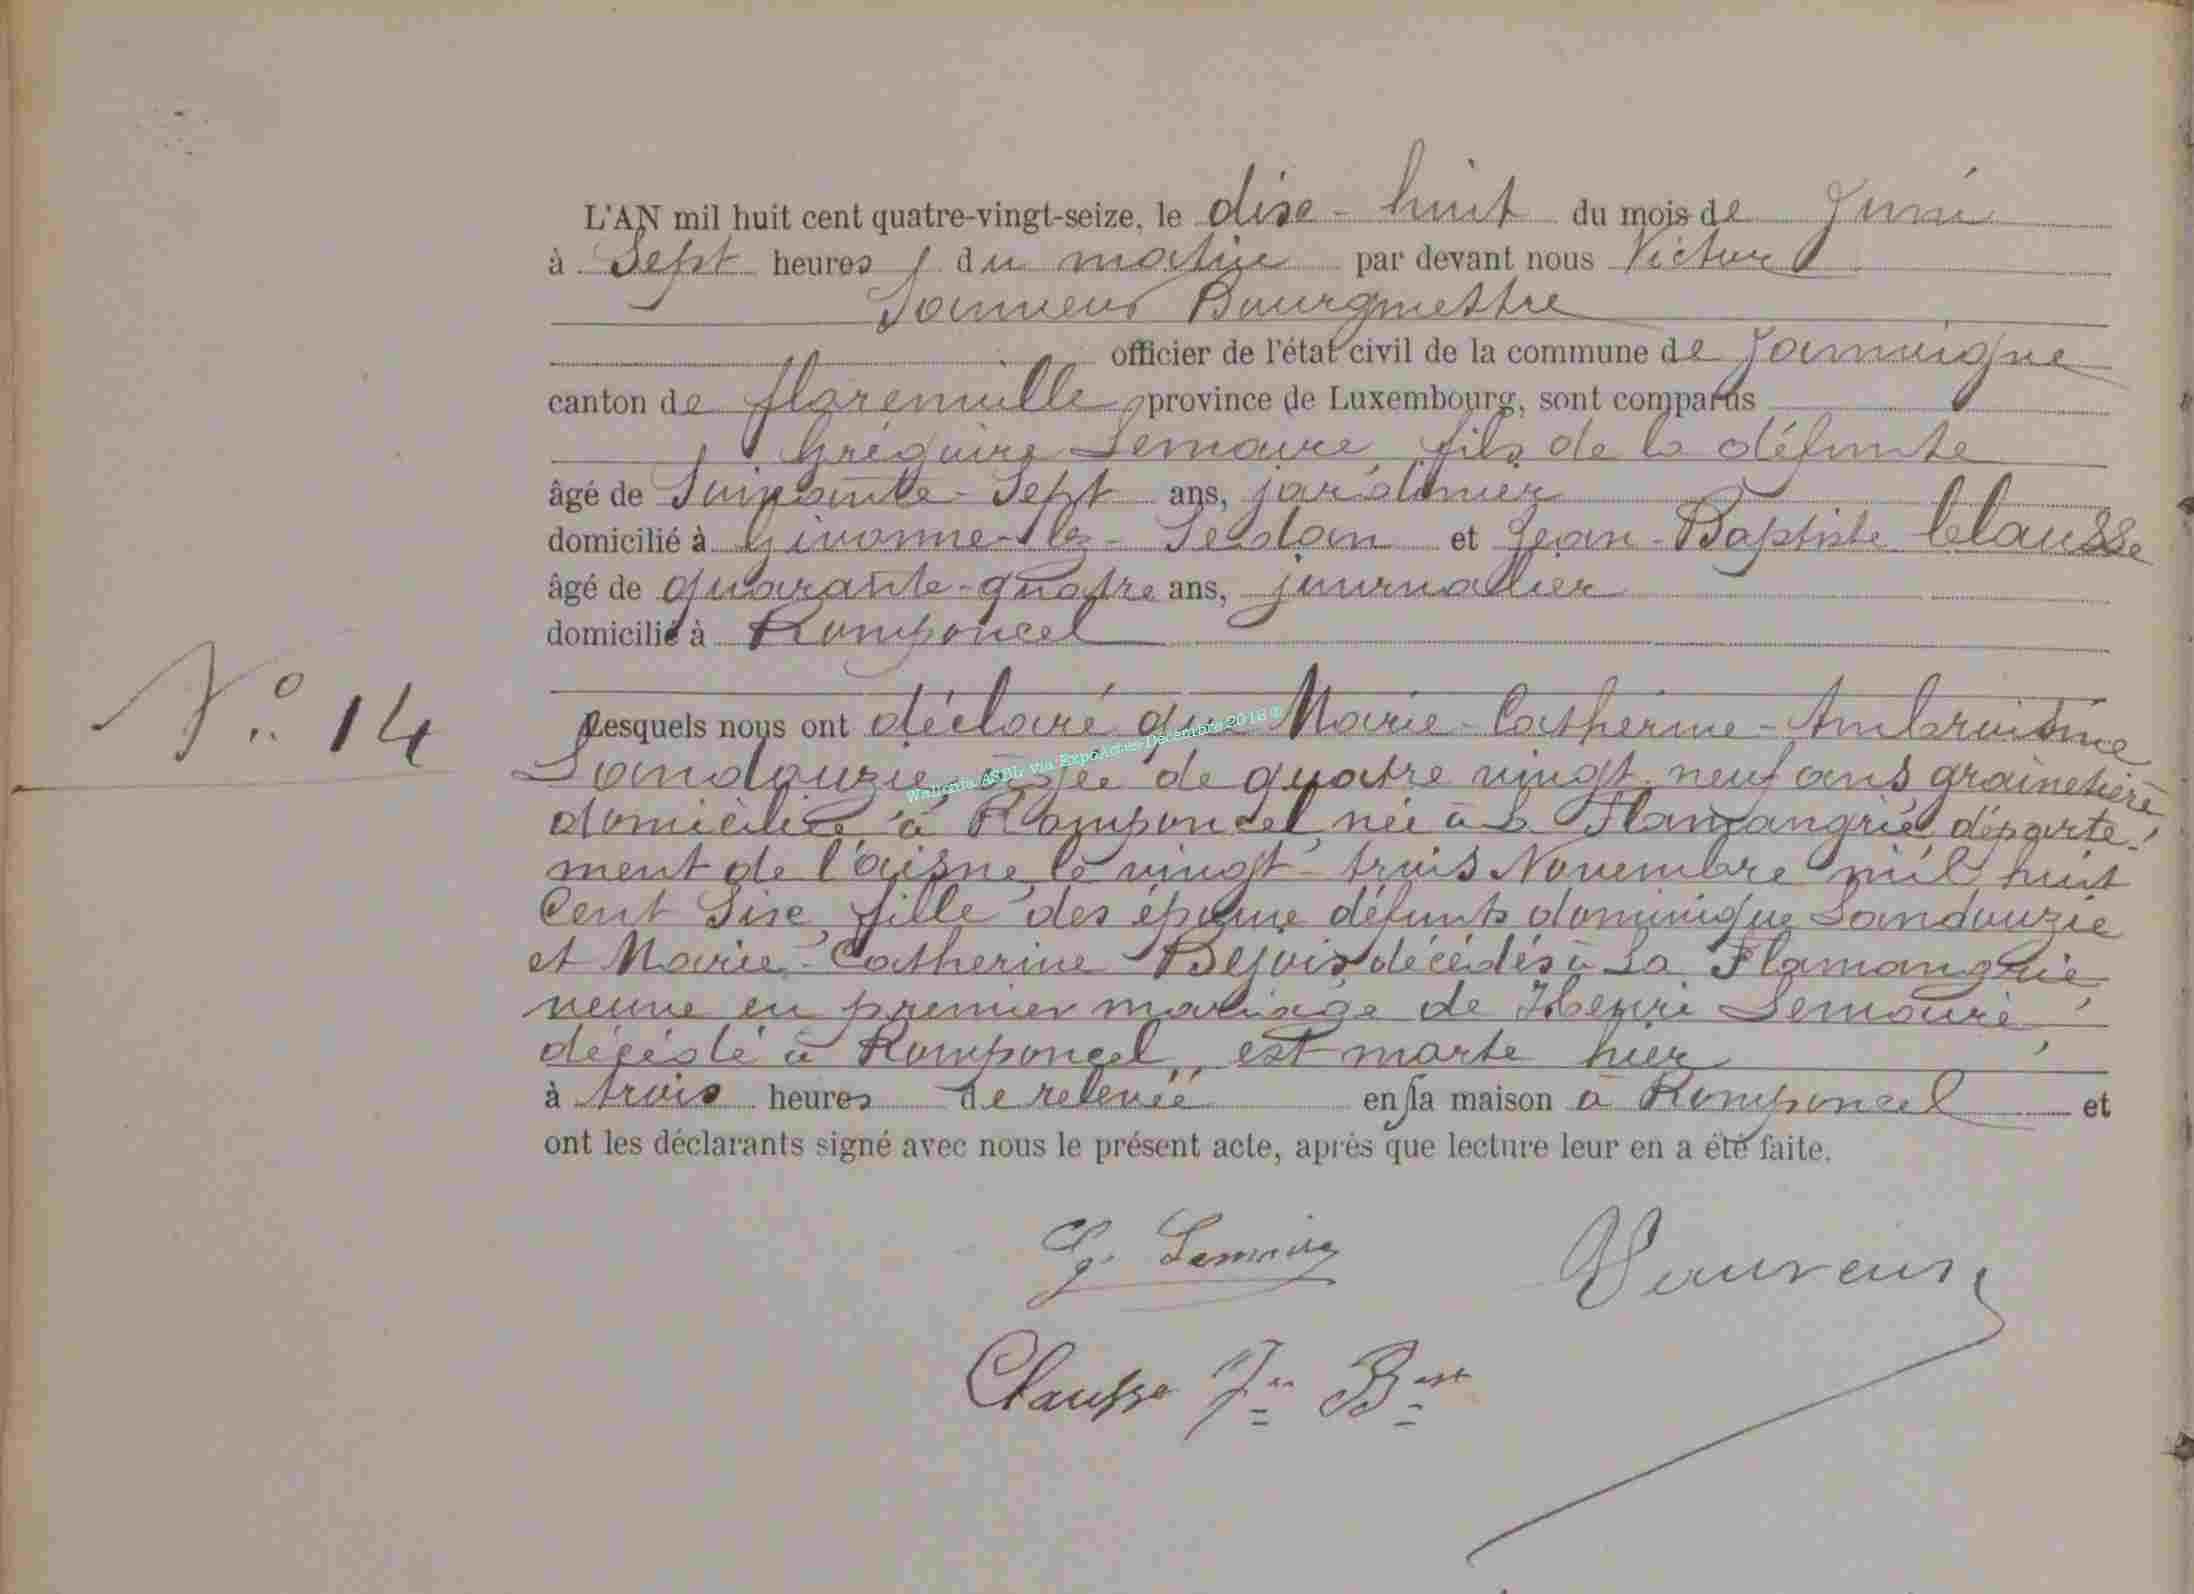 L'AN mil huit cent quatre-vingt-seize, le dixe-huit du mois de Juin
à Sept heures du matin par devant nous Victor
Bourgmestre
officier de l'état civil de la commune de Jamoigne
canton de florenville province de Luxembourg, sont comparus
Grégoire Lemaire, fils de la défunte
âgé de Soixante-Sept ans, jardinier
domicilié à Givonne-lez-Sedan et Jean-Baptiste Clausse
âgé de quarante-quatre ans, journalier
domicilié à Romponcel
N° 14
Lesquels nous ont déclaré que Marie-Catherine-Ambroisine
Landouzie, âgée de quatre vingt neuf ans grainetière
domiciliée à Romponcel, née à La Flamangrie, départe-
ment de l'aisne le vingt-trois Novembre mil huit
Cent Sixe, fille des époux défunts dominique Landouzie
et Marie-Catherine décédés à La Flamangrie
veuve en premier mariage de Henri Lemaire
décédé à Romponcel, est morte hier
à trois heures de relevée en sa maison à Romponcel et
ont les déclarants signé avec nous le présent acte, après que lecture leur en a été faite.
G. Lemaire
Clausse Jn Bste
Wallonia ASBL via ExpoActes Décembre 2016 ©